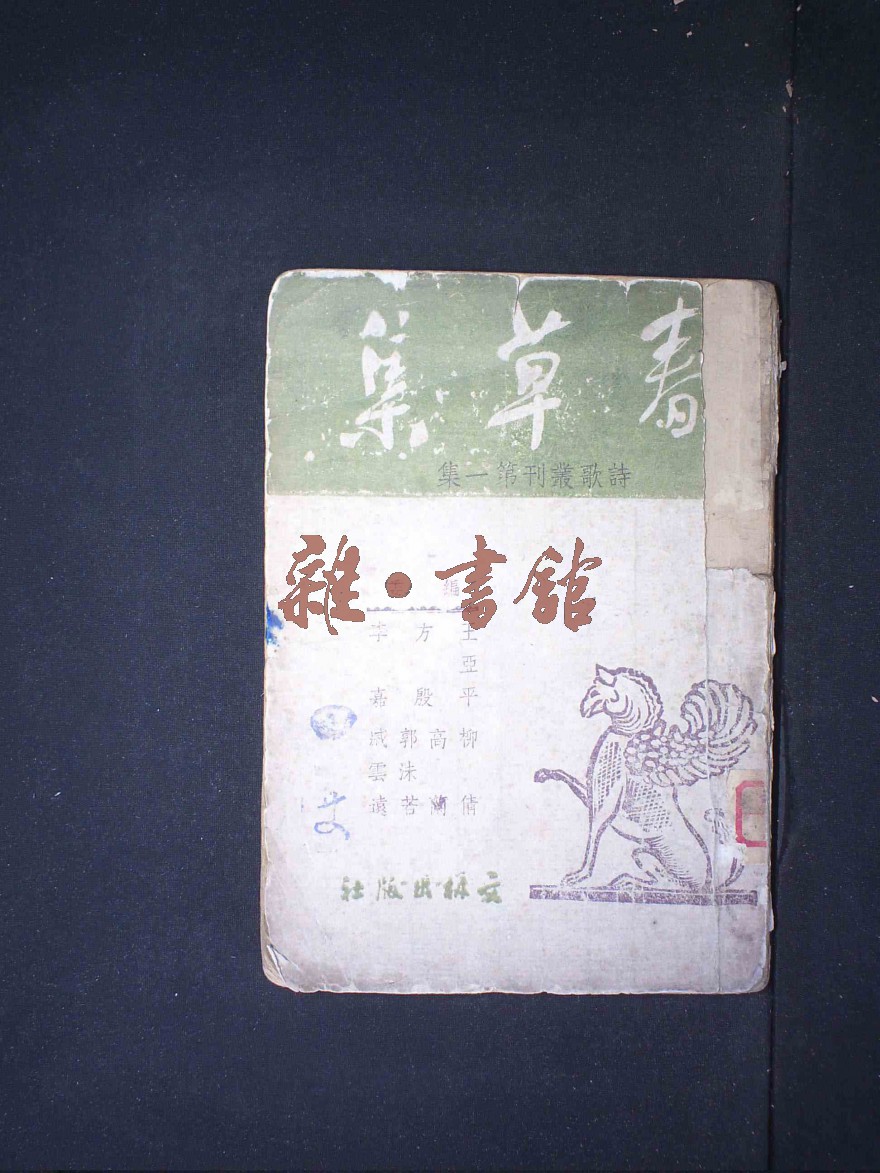 春草集
詩歌叢刊第一集
雜·書館
編
王亞平
方殷
李嘉
柳倩
高蘭
郭沫若
臧雲遠
文林出版社